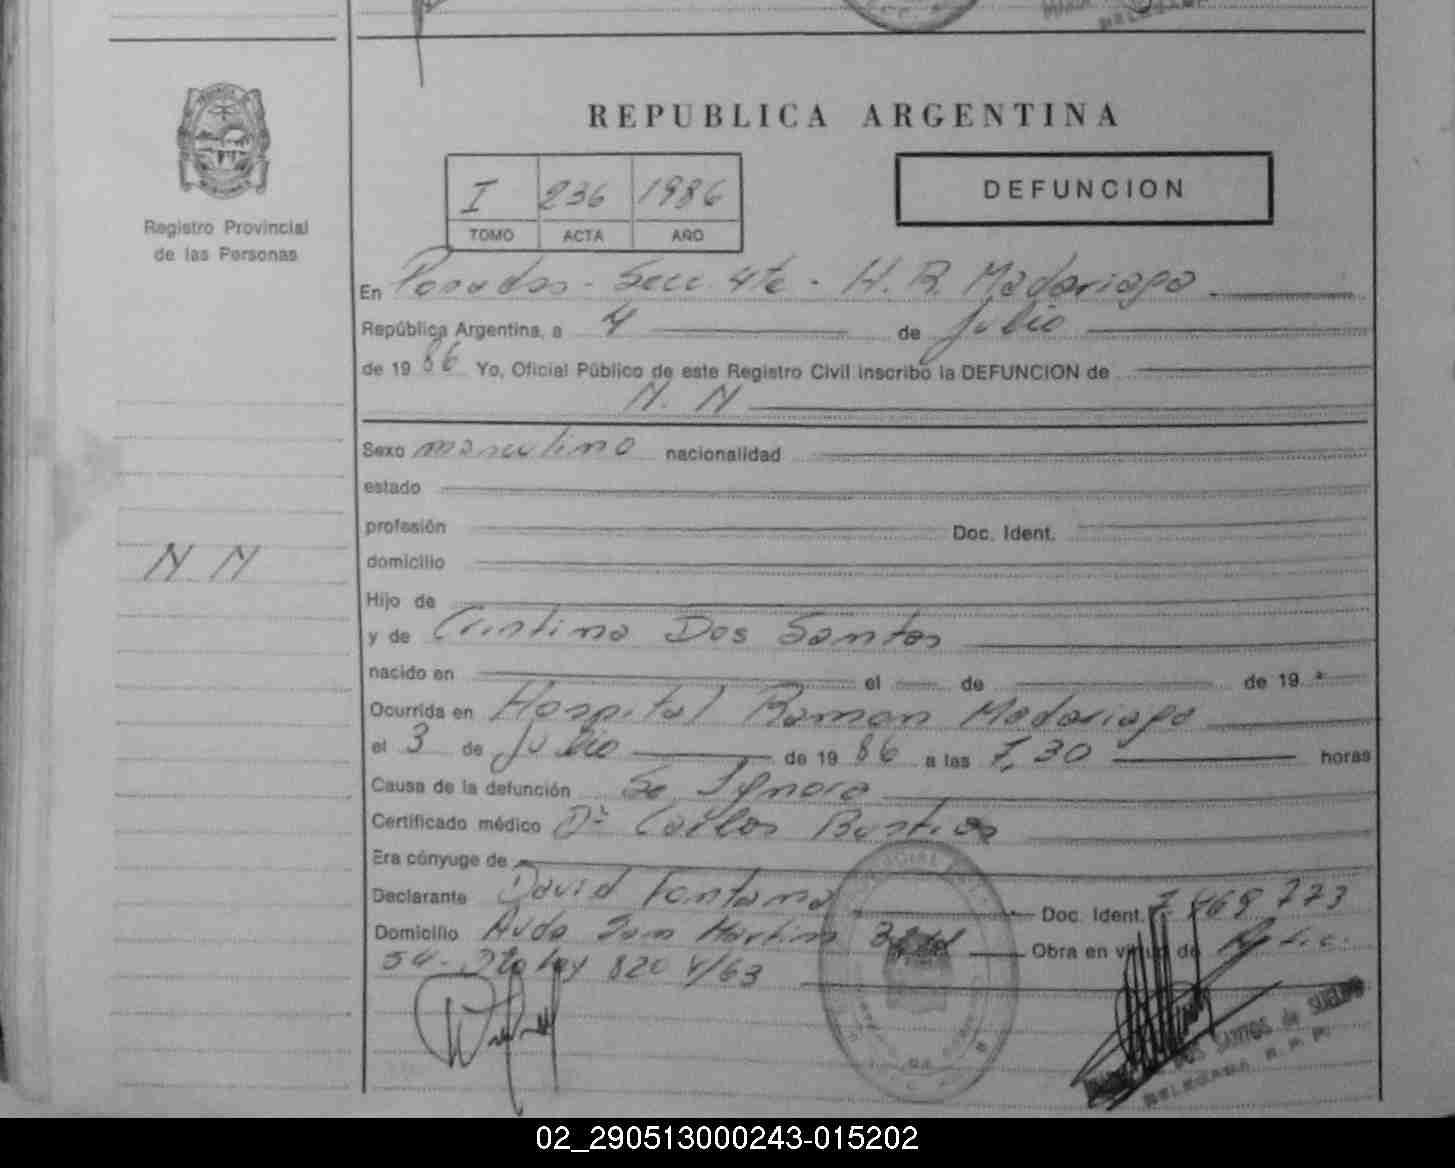 REPUBLICA ARGENTINA
I 236 1986
TOMO ACTA AÑO
DEFUNCION
Registro Provincial
de las Personas
En Posadas - Secc. 4ta - H. R. Madariaga
República Argentina, a 4 de Julio
de 19 86 Yo, Oficial Público de este Registro Civil inscribo la DEFUNCION de
N. N
Sexo masculino nacionalidad
estado
profesión Doc. Ident.
N N
domicilio
Hijo de
y de Cristina Dos Santos
nacido en el de de 19
Ocurrida en Hospital Ramon Madariaga
el 3 de Julio de 19 86 a las 7,30 horas
Causa de la defunción Se Ignora
Certificado médico Dr Carlos Bustos
Era cónyuge de
Declarante David Fontana Doc. Ident. 7 469 773
Domicilio Avda San Martin Obra en virtud de
54 - 820 4/63
SANTOS de SUELDO
DELEGADA R. P. P.
02_290513000243-015202